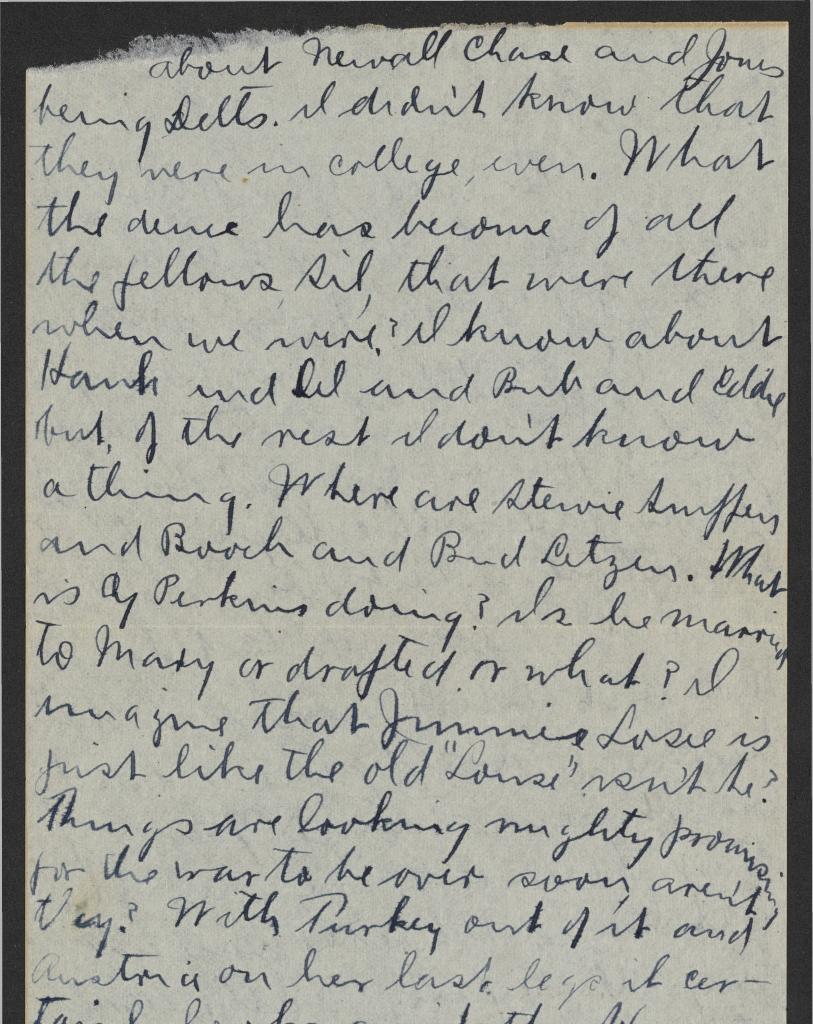 about Newall Chase and Jones
being Delts. I didn't know that
they were in college, even. What
the deuce has become of all
the fellows, Sil, that were there
when we were? I know about
Hank and Lil and Bub and Eddie
but, of the rest I don't know
a thing. Where are Stewie
and Booch and Bud Letzen. What
is Cy Perkins doing? Is he married
to Mary or drafted or what? I
imagine that Jimmie Losie is
just like the old "Louse" isn't he?
Things are looking mighty promising
for the war to be over soon, aren't
they? With Turkey out of it and
Austria on her last legs it cer-